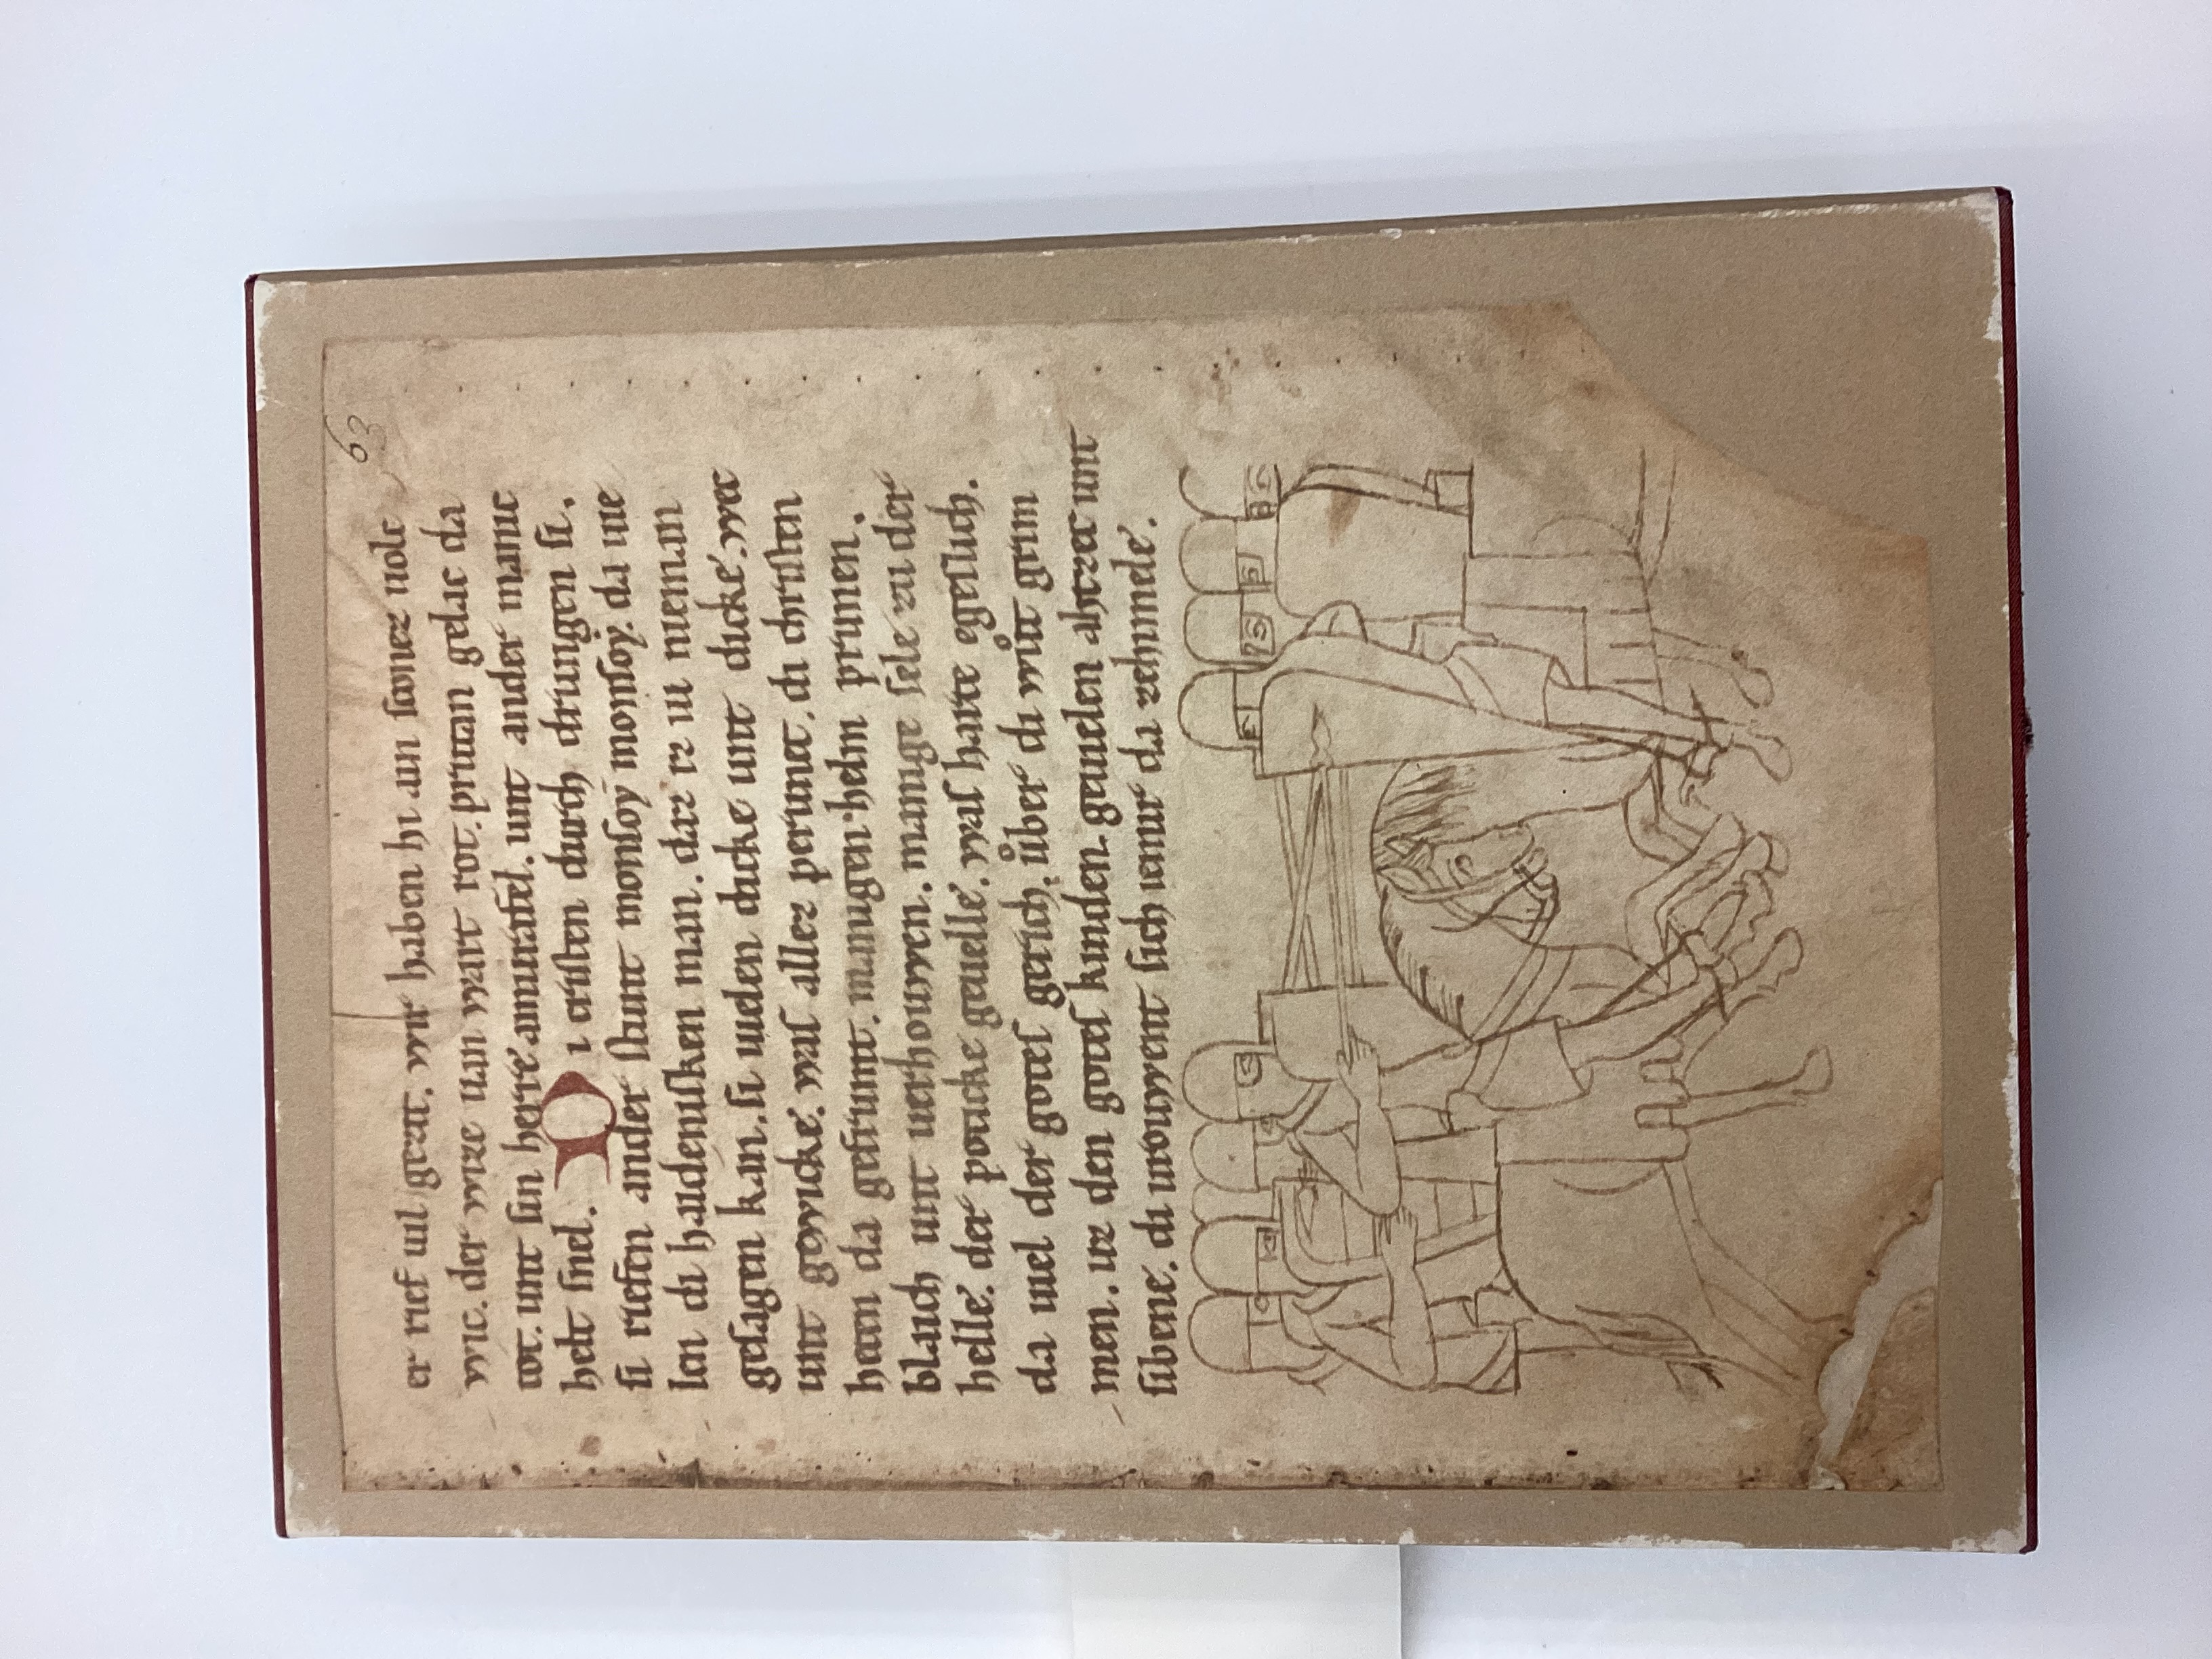 63
er rief uil gezit. wir haben hi ain sconez uolc
wic. der wize uan wart rot. pruan gelac da
tot. unt sin herre amurafel. unt ander manic
helt snel. Di cristen durch drungen si.
si riefen ander stunt monsoy monsoy. da uie
len di haidenisken man. daz iz iu nieman
gesagen kan. si uielen dicke unt dicke. wec
unt gewicke. was allez perunet. di christen
heten da gefrumt. manigen helm prunen.
blaich unt uerhouwen. manige sele zu der
helle. der poucke geuelle. was harte egeslich.
da uiel der gotes gerich. über di wůt grim
men. uz den gotes kinden. geuielen ahzec unt
sibene. di urouwent sich iemir da zehimele.